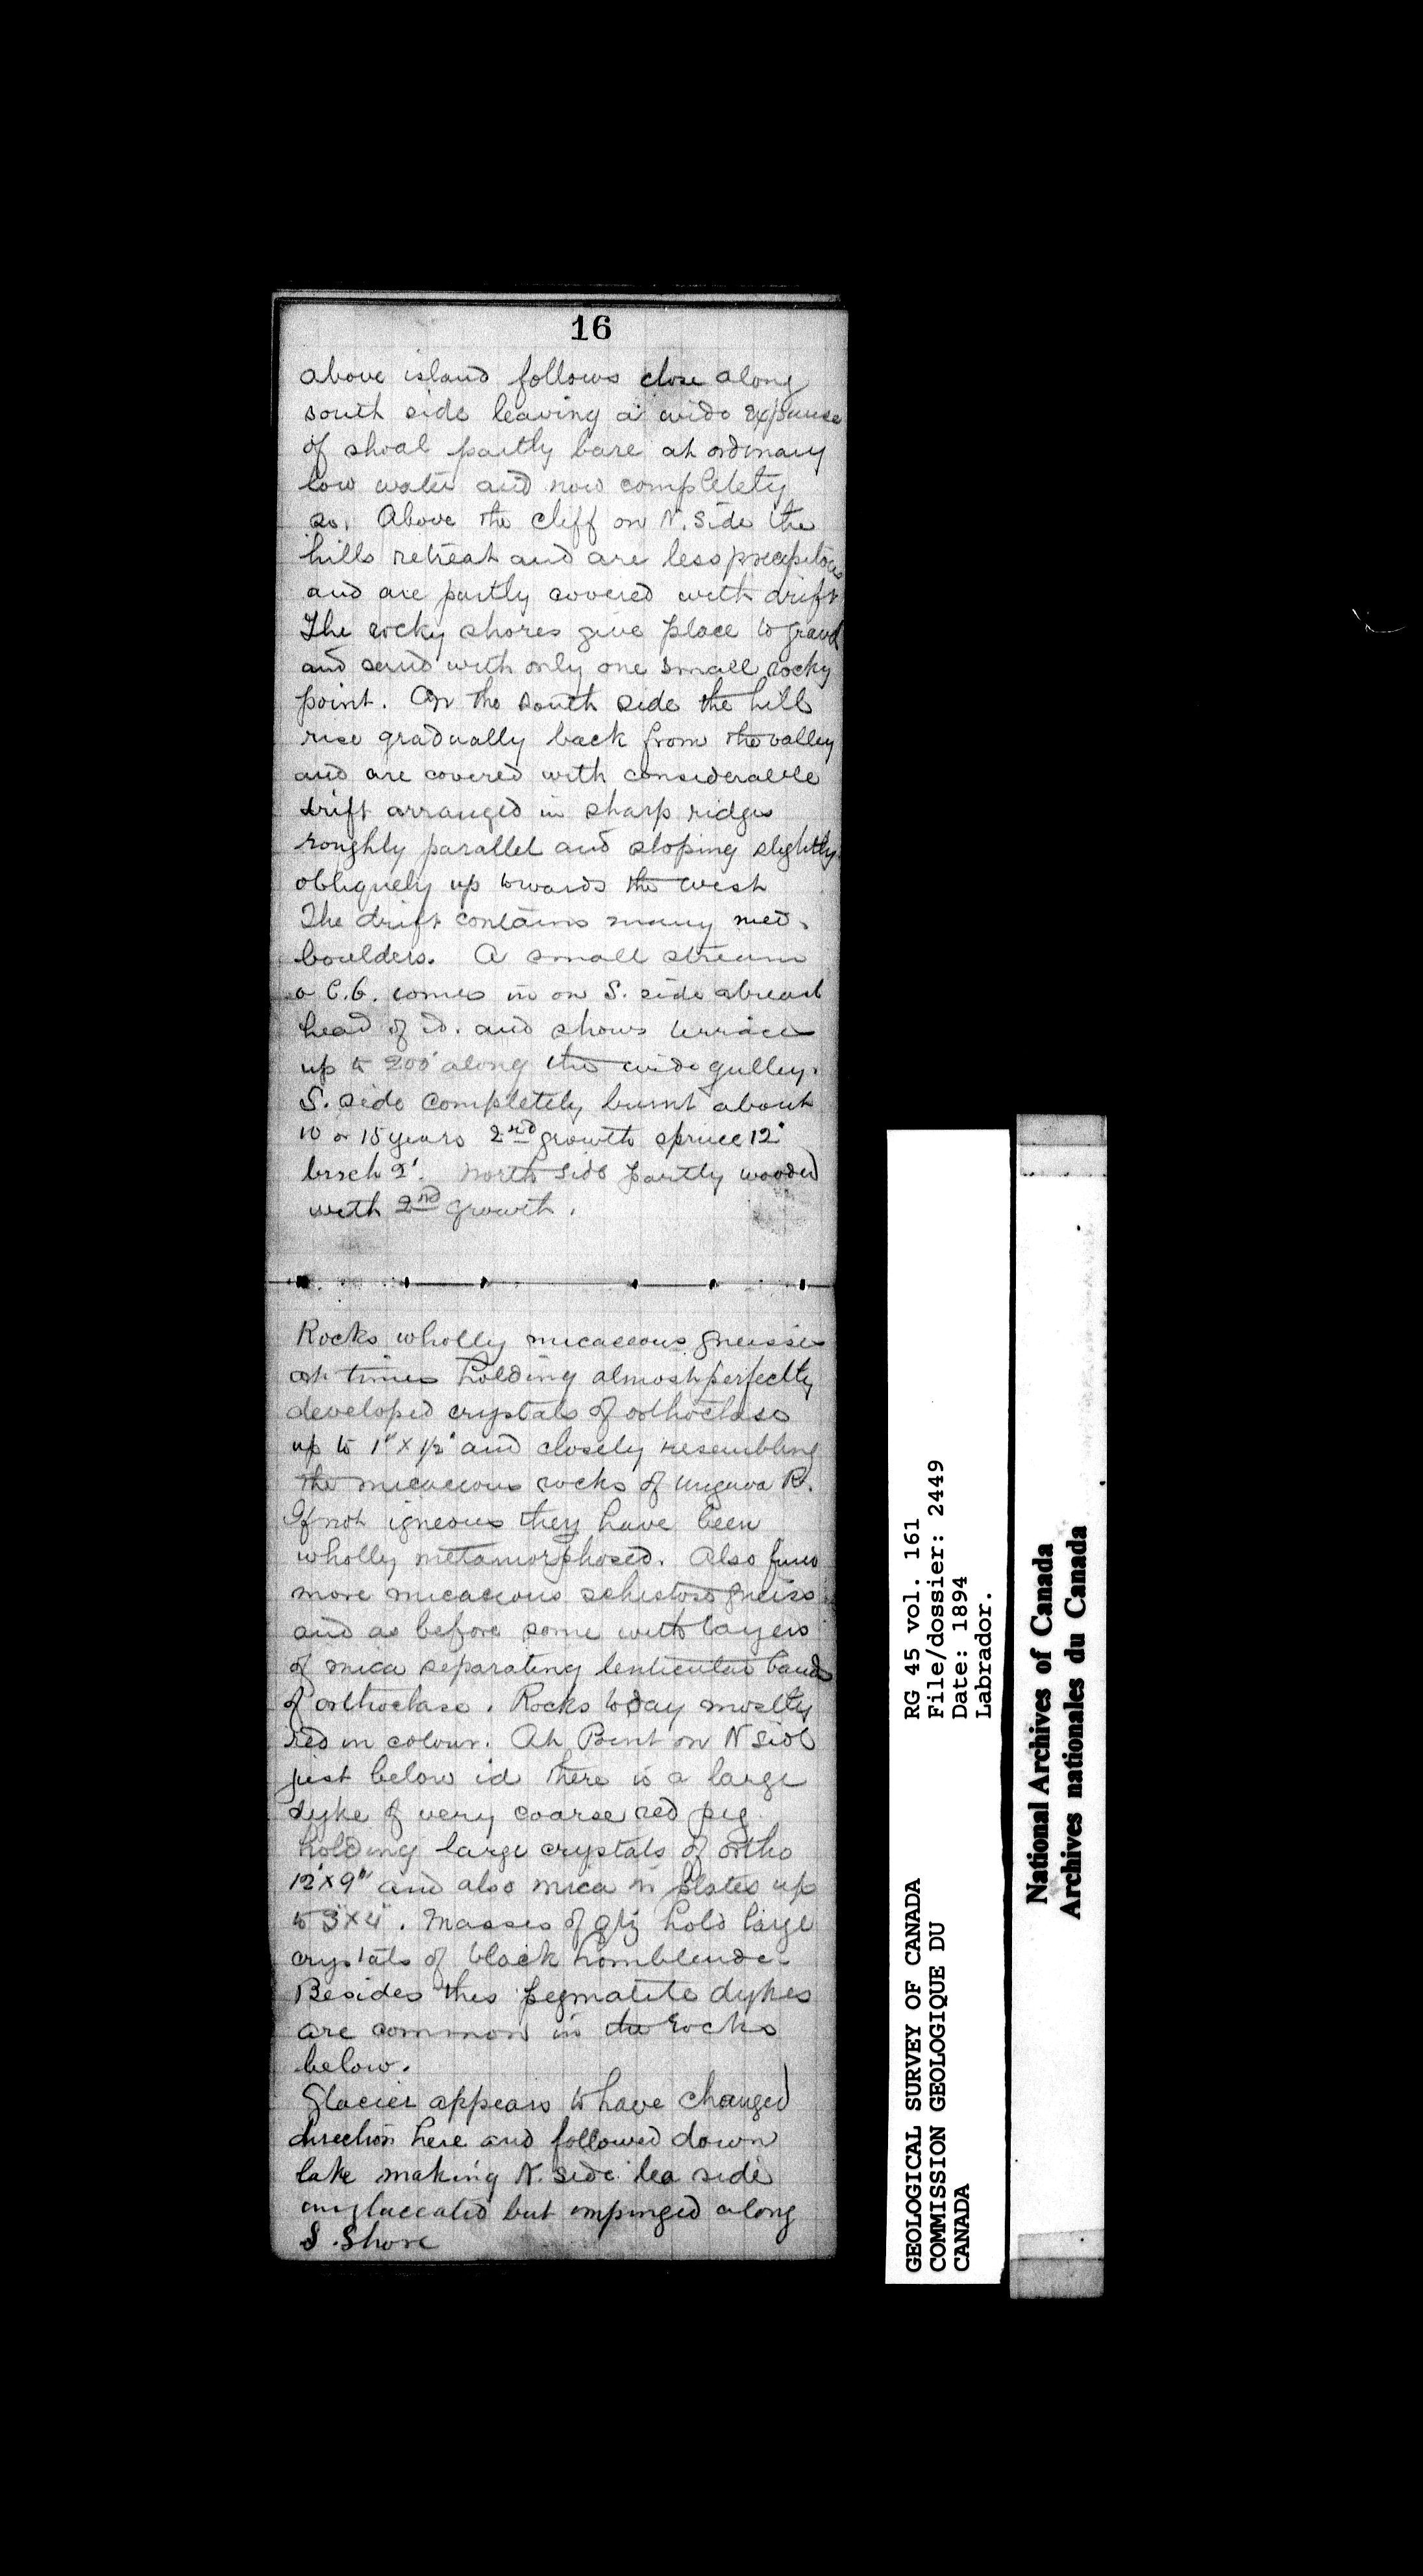 16
above island follows close along
south side leaving a wide expanse
of shoal partly bare at ordinary
low water and now completely
so. Above the cliff on N. side the
hills retreat and are less precipitous
and are partly covered with drift
The rocky shores give place to gravel
and sand with only one small rocky
point. On the south side the hills
rise gradually back from the valley
and are covered with considerable
drift arranged in sharp ridges
roughly parallel and sloping slightly
obliquely up towards the west
The drift contains many med.
boulders. A small stream
a C.b. comes in on S. side abreast
head of id. and shows terraces
up to 200' along the wide gulley.
S. side completely burnt about
10 or 15 years 2nd growth spruce 12"
birch 2'. North side partly wooded
with 2nd growth.
Rocks wholly micaceous gneisses
at times holding almost perfectly
developed crystals of orthoclase
up to 1" x 1/2" and closely resembling
the micaceous rocks of Ungava R.
If not igneous they have been
wholly metamorphosed. Also finer
more micaceous schistose gneiss
and as before some with layers
of mica separating lenticular bands
of orthoclase. Rocks today mostly
red in colour. At Point on N side
just below id there is a large
dyke of very coarse red peg
holding large crystals of ortho
12" x 9" and also mica in plates up
to 3" x 4". Masses of qtz hold large
crystals of black hornblende.
Besides this pegmatite dykes
are common in the rocks
below.
Glacier appears to have changed
direction here and followed down
lake making N. side lea side
unglaceated but impinged along
S. Shore
GEOLOGICAL SURVEY OF CANADA
COMMISSION GEOLOGIQUE DU
CANADA
RG 45 vol. 161
File/dossier: 2449
Date: 1894
Labrador.
National Archives of Canada
Archives nationales du Canada